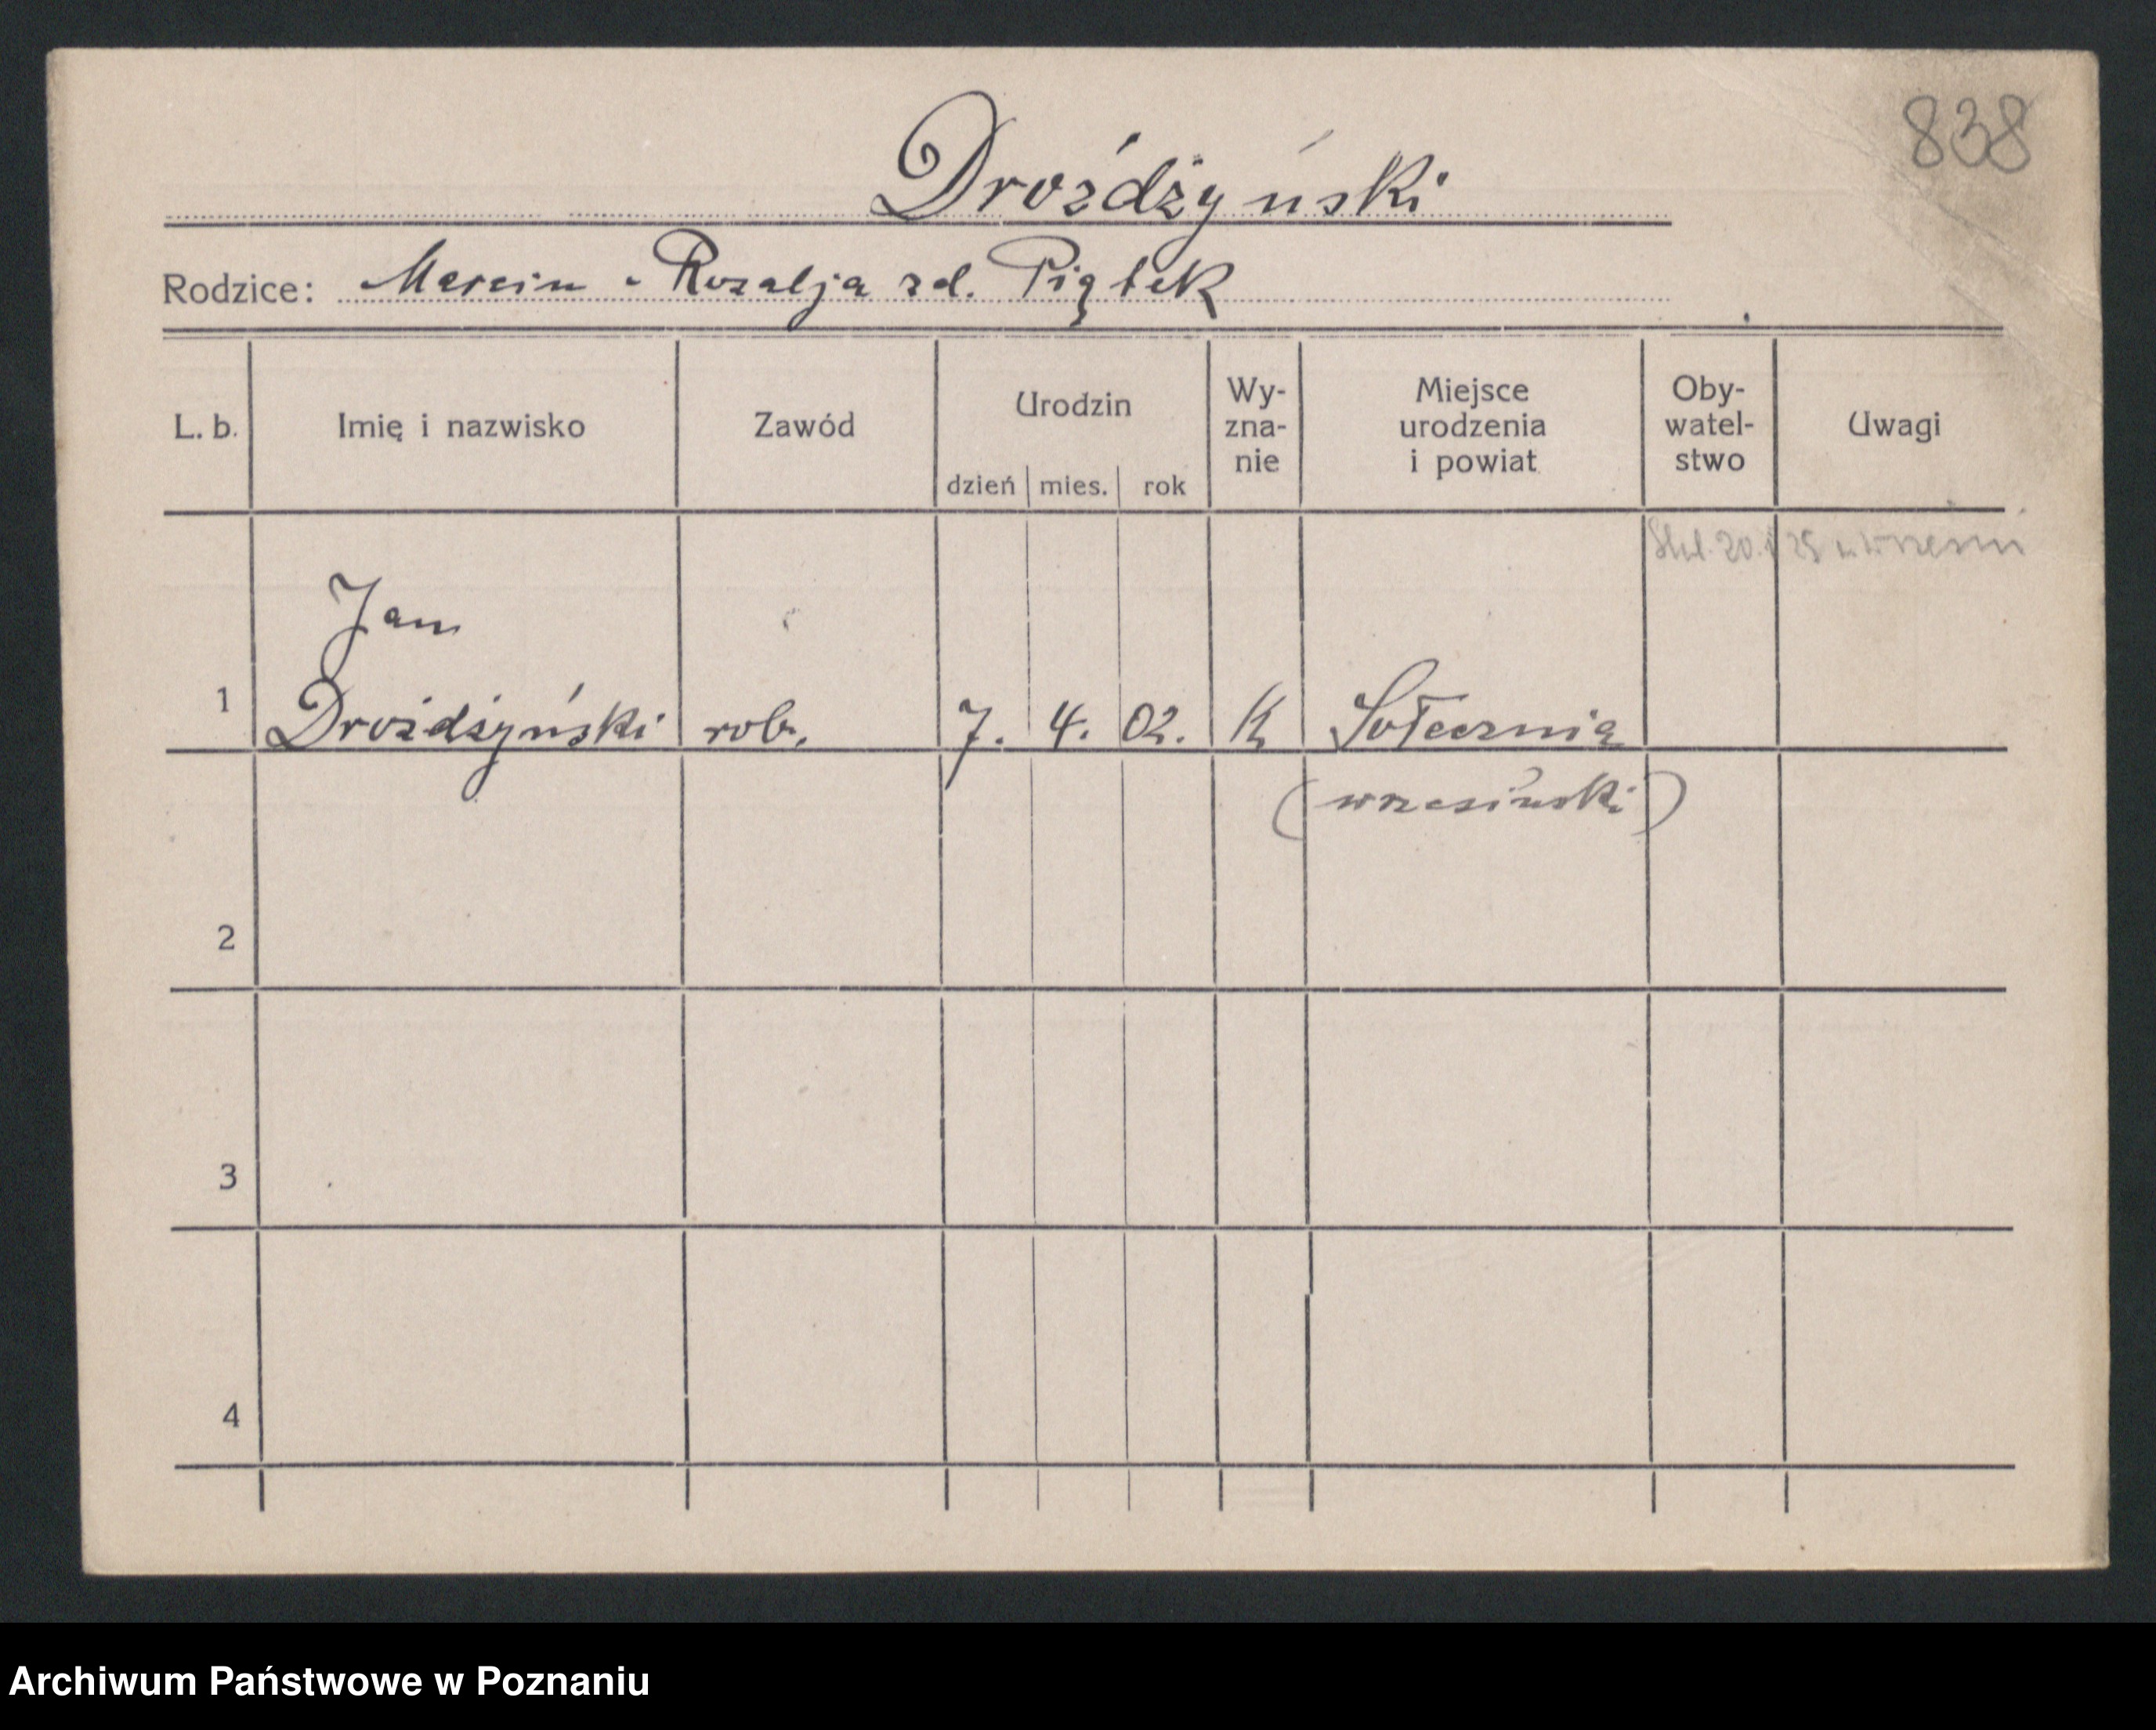 838
Droźdżyński
Rodzice: Marcin i Rozalja zd. Piątek
L. b. Imię i nazwisko Zawód Urodzin dzień mies. rok Wy- zna- nie Miejsce urodzenia i powiat Oby- watel- stwo Uwagi
20.
Jan
1 Drożdżyński rob. 7. 4. 02. K Sołecznia
(wrzesiński)
2
3
4
Archiwum Państwowe w Poznaniu